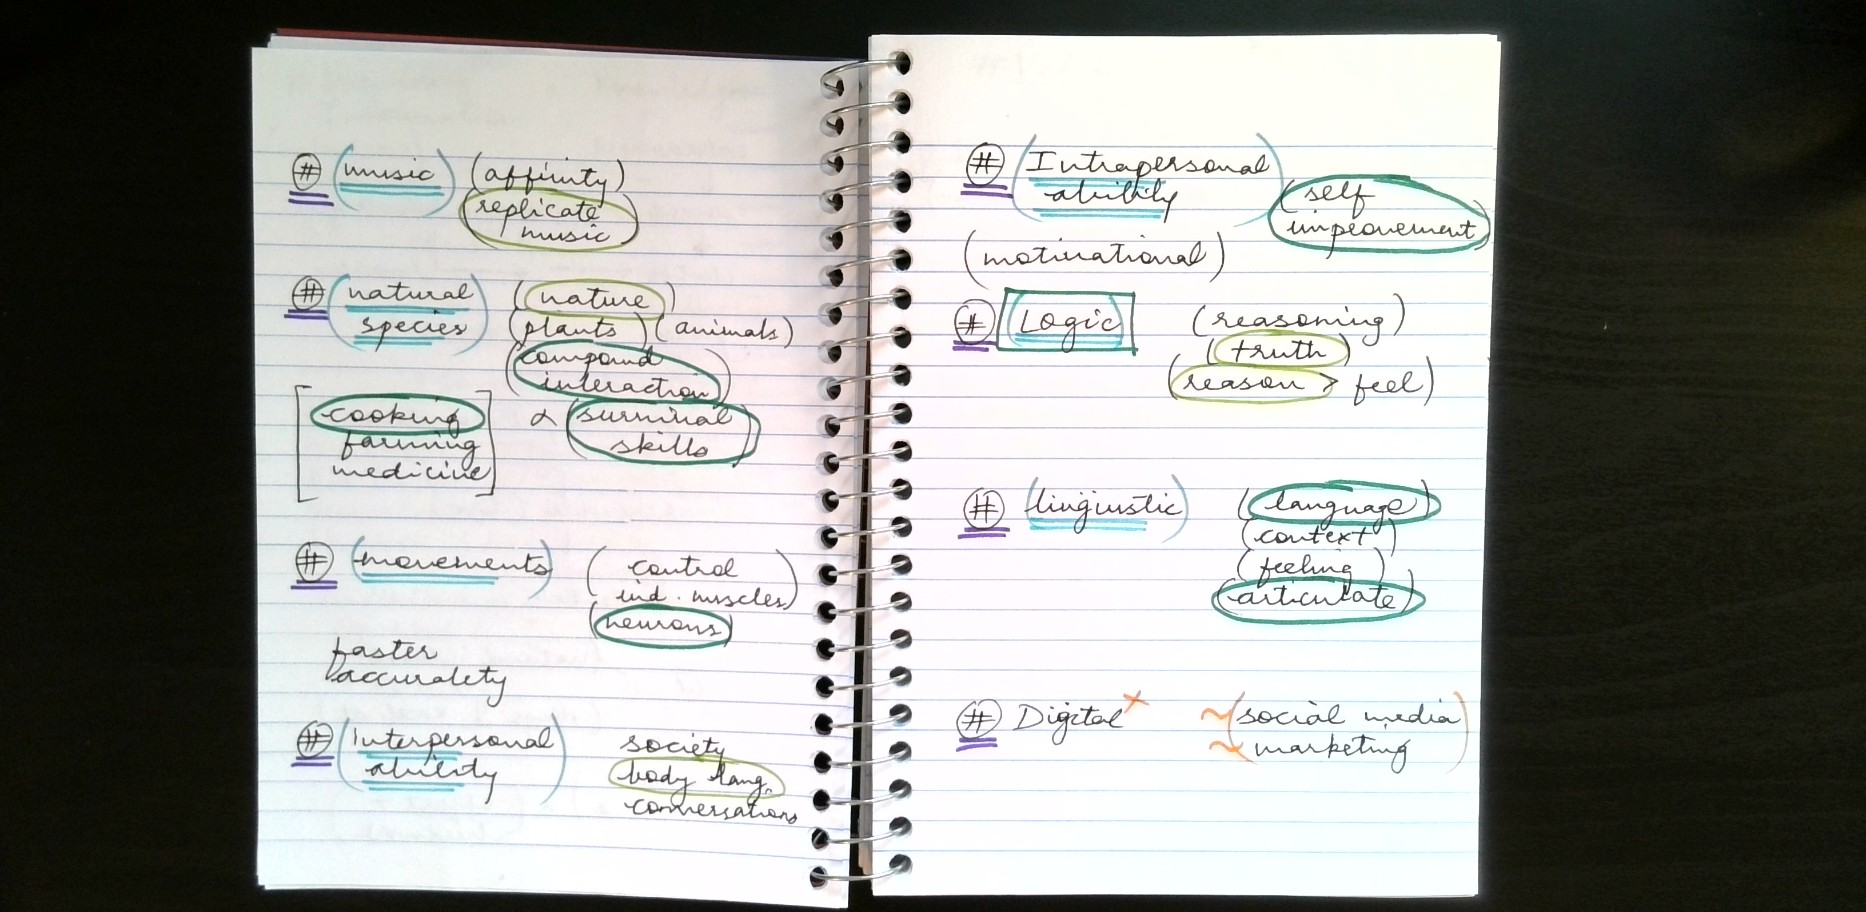 # (music) (affinity)
(replicate
music)
# (natural (nature)
species) (plants) (animals)
(compound
interaction)
[cooking α (survival
farming skills)
medicine]
# (movements) (control
ind. muscles)
(neurons)
faster
accuratety
# (Interpersonal society
ability) body lang.
conversations
# (Intrapersonal
ability) (self
improvement)
(motivational)
# (Logic) (reasoning)
(truth)
(reason > feel)
# (linginstic) (language)
(context)
(feeling)
(articulate)
# Digital x ~ (social media
~ marketing)